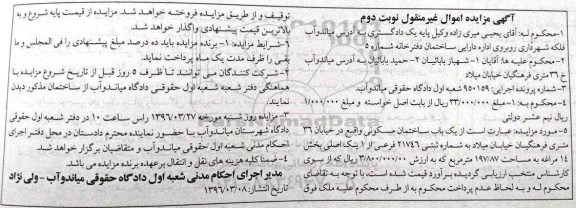 آگهی مزایده اموال غیرمنقول نوبت دوم
۱-محکوم له: آقای یحیی میری زاده وکیل پایه یک دادگستری به آدرس میاندوآب
فلکه شهرداری روبروی اداره دارایی ساختمان دفترخانه شماره ۵
۲-محکوم علیه ها: آقایان ۱-شهباز بابائیان ۲-حمید بابائیان به آدرس میاندوآب
خ ۳۶ متری فرهنگیان خیابان میلاد
۳-شماره پرونده اجرایی: ۹۵۰۱۵۹ شعبه اول دادگاه حقوقی میاندوآب.
۴-محکوم به: ۱-مبلغ ۳۳/۰۰۰/۰۰۰ ریال از بابت اصل خواسته و مبلغ ۱/۰۰۰/۰۰۰
ریال نیم عشر دولتی
۵-مورد مزایده: عبارت است از یک باب ساختمان مسکونی واقع در خیابان ۳۶
متری فرهنگیان خیابان میلاد به شماره ثبتی ۲۱۷۴۶ فرعی از ۱ یک اصلی بخش
۱۴ مراغه به مساحت ۱۹۷/۸۷ مترمربع که به ارزش ۳/۸۰۰/۰۰۰/۰۰۰ ریال که از سوی
کارشناس منتخب ارزیابی گردیده برآورد قیمت شده است، با توجه به تقاضای
محکوم له و به لحاظ عدم پرداخت محکوم به از طرف محکوم علیه ملک فوق
توقیف و از طریق مزایده فروخته خواهد شد. مزایده از قیمت پایه شروع و به
بالاترین قیمت پیشنهادی واگذار خواهد شد.
۶-شرایط مزایده: ۱-برنده مزایده باید ده درصد مبلغ پیشنهادی را فی المجلس و ما
بقی را ظرف مدت یک ماه پرداخت نماید.
۲-شرکت کنندگان می توانند تا ظرف ۵ روز قبل از تاریخ شروع مزایده با
هماهنگی دفتر شعبه شعبه اول حقوقی دادگاه میاندوآب از ساختمان مذکور دیدن
نمایند.
۳-مزایده روز شنبه مورخه ۱۳۹۶/۰۳/۲۷ راس ساعت ۱۰ در دفتر شعبه اول حقوقی
دادگاه شهرستان میاندوآب با حضور نماینده محترم دادستان در محل دفتر اجرای
احکام مدنی شعبه اول حقوقی میاندوآب و متقاضیان برگزار خواهد شد.
۴-ضمنا کلیه هزینه های نقل و انتقال برعهده برنده مزایده می باشد.
مدیر اجرای احکام مدنی شعبه اول دادگاه حقوقی میاندوآب - ولی نژاد
تاریخ انتشار: ۱۳۹۶/۰۳/۰۸